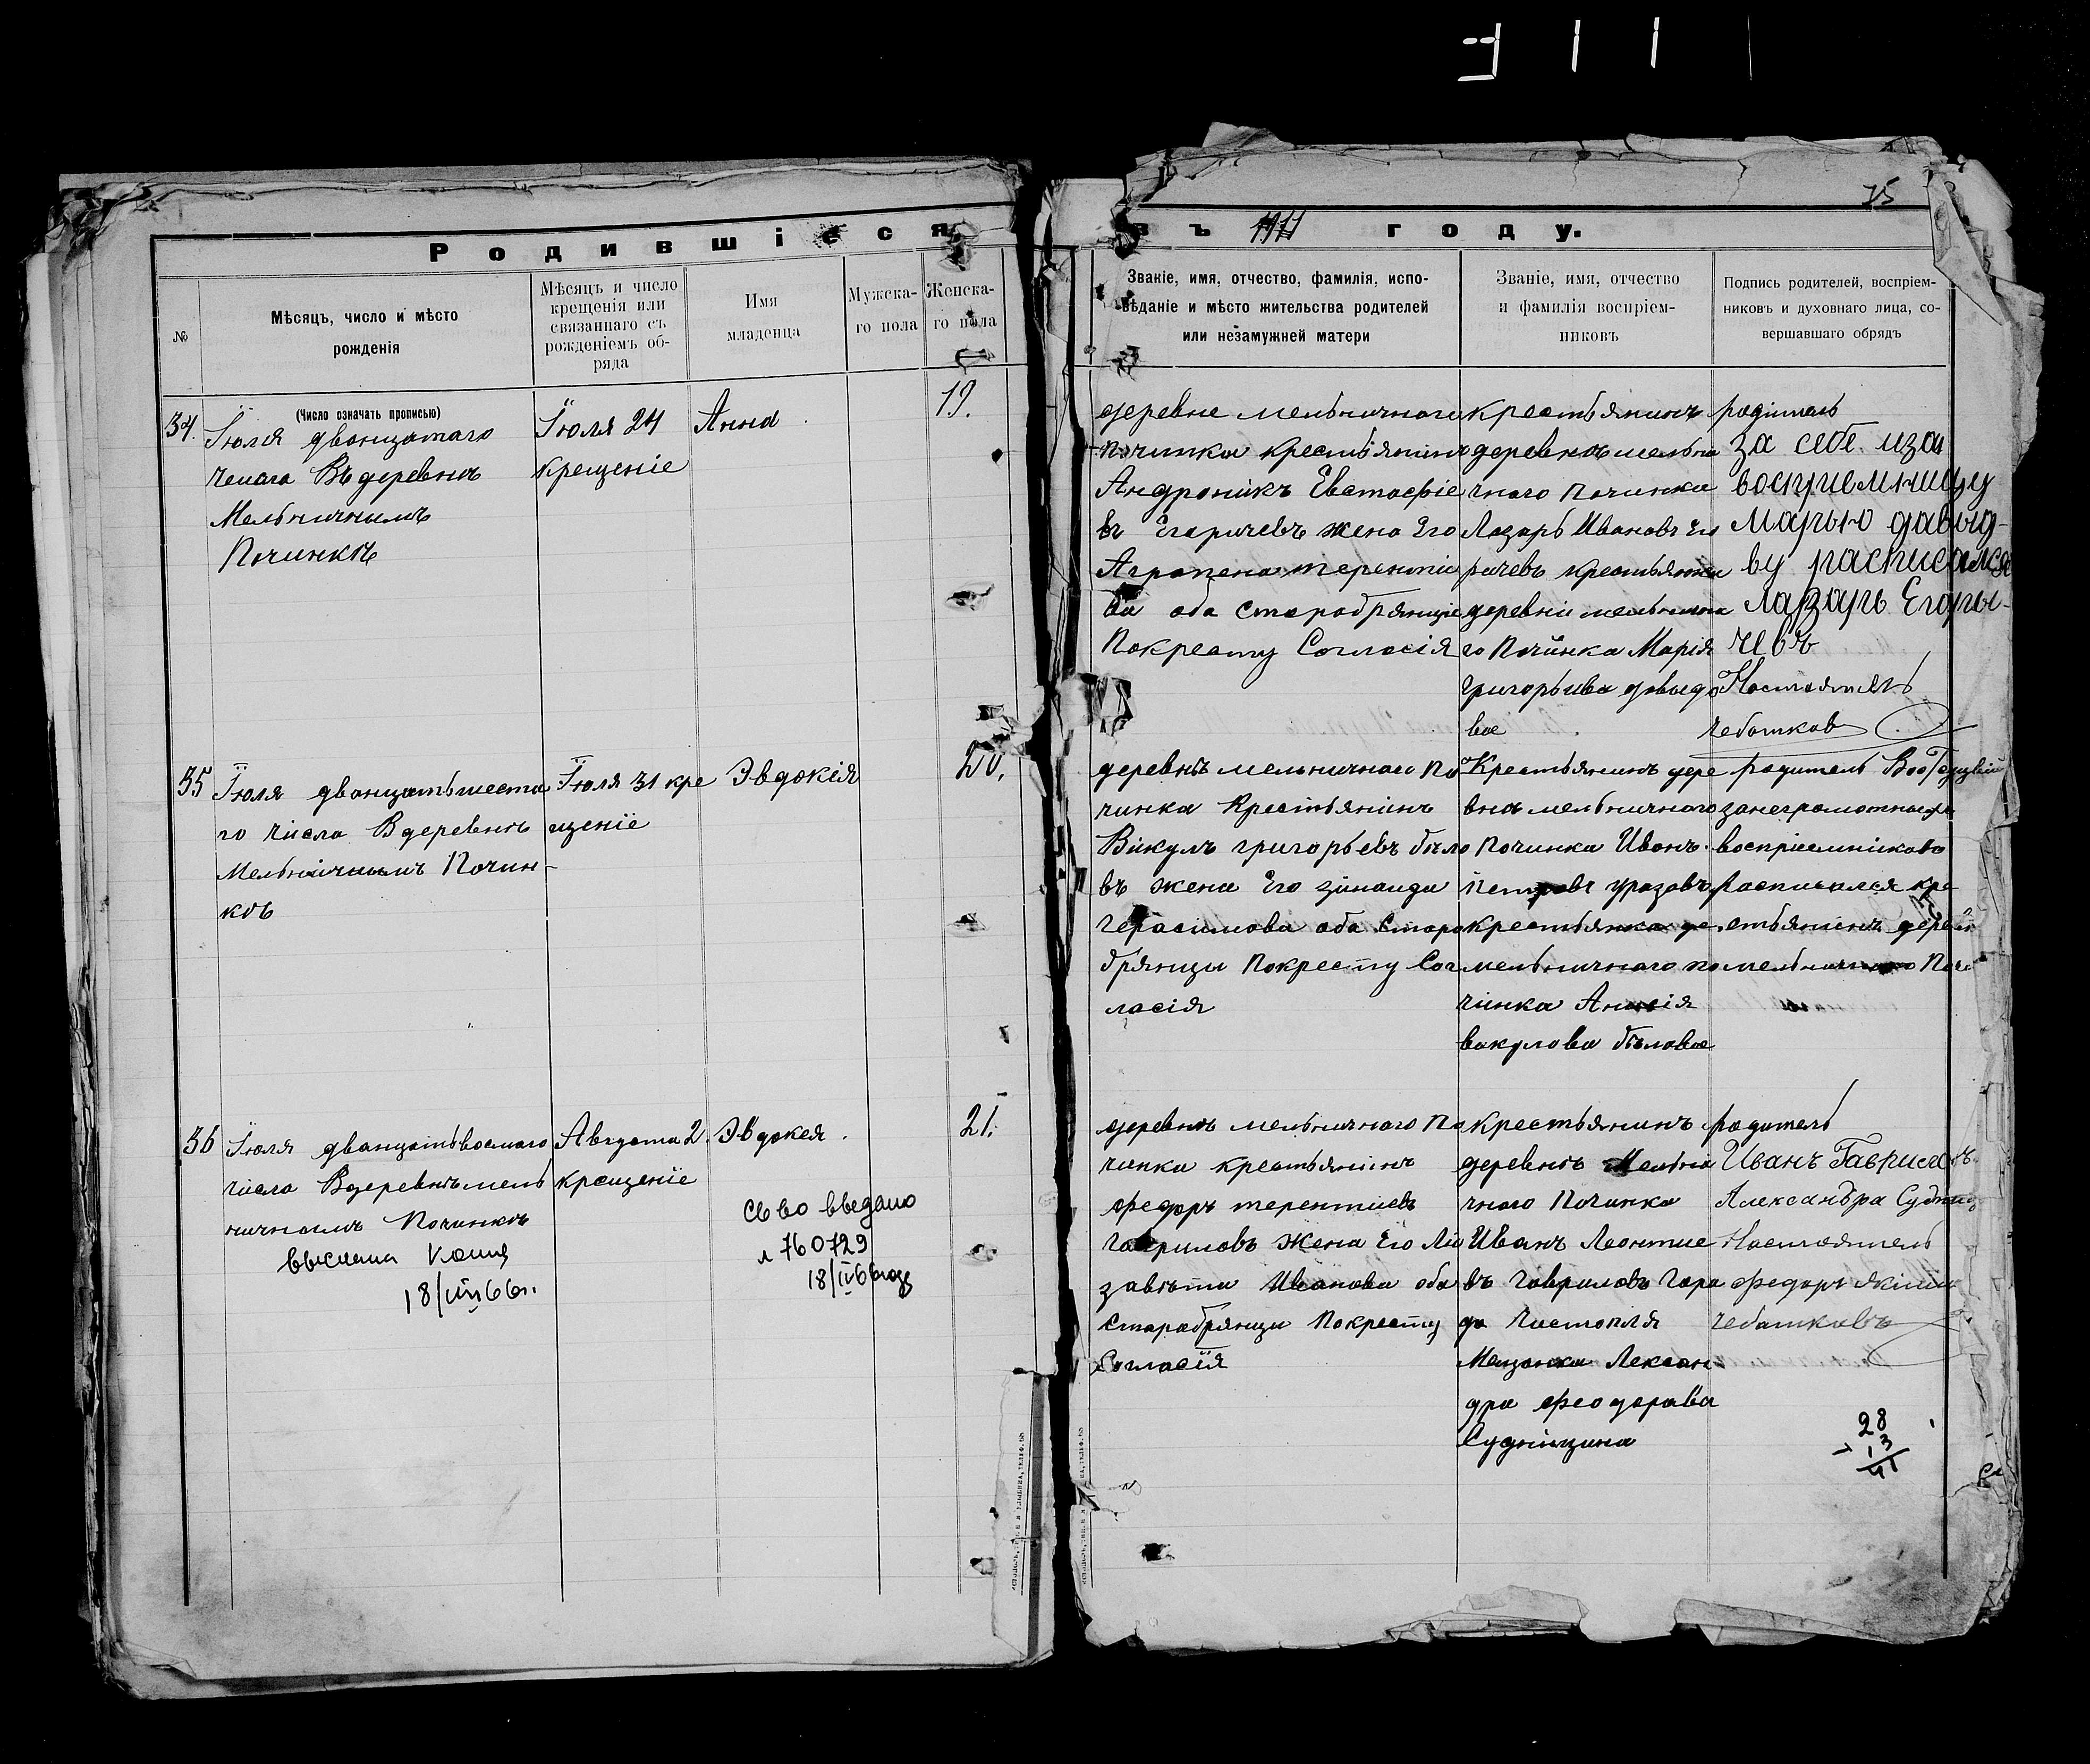 311
75
Родившіеся
въ 1911 году.
№
Мѣсяцъ, число и мѣсто
рожденія
Мѣсяцъ и число
крещенія или
связаннаго съ
рожденіемъ об-
ряда
Имя
младенца
Мужска-
го пола
Женска-
го пола
Званіе, имя, отчество, фамилія, испо-
вѣданіе и мѣсто жительства родителей
или незамужней матери
Званіе, имя, отчество
и фамилія воспріем-
никовъ
Подпись родителей, воспріем-
никовъ и духовнаго лица, со-
вершавшаго обрядъ
(Число означать прописью)
34.
Іюля дванцатаго
числа Въ деревнѣ
Мельничнымъ
Починкѣ
Іюля 24
крещеніе
Анна
19.
деревне мельничнаго
починка крестьянинъ
Андроникъ Евстафіе
въ Егаричевъ жена Его
Агропена терентіе
ва оба старобрянціе
Покресту Согласія
крестьянинъ
деревнѣ мельни
чнаго Починка
Лазарь Ивановъ Его
ричевъ крестьянка
деревни мельнична
го Починка Марія
григорьива довыдо
вое
родитель
за себе иза
восприемницу
Марью давыд-
ву расписался
лазарь Егоры-
чевъ
Настоятель
чебатков
35
Іюля дванцатьшеста
го числа Вдеревнѣ
Мельничнымъ Почин-
кѣ
Іюля 31 кре
щеніе
Эвдокія
20.
деревнѣ мельничнаго По
чинка Крестьянинъ
Викулъ григорьевъ было
въ жена Его зинаида
герасимова оба Старо
брянцы Покресту Сог
ласія
Крестьянинъ дере
вна мельничнаго
Починка Иванъ
Петровъ уразовъ
крестьянка де
мельничнаго по
чинка Анисія
викулова былавое
родитель
занеграмотные
воспріемниковъ
Расписался кре
стьянинъ дерев
мельничнаго Поч
36
Іюля дванцатьвосмаго
числа Вдеревнѣ мель
ничнымъ Починкѣ
Августа 2
крещеніе
Эвдокея.
21.
выслана копия
18/VII 66г.
Св во выдано
л 760729
18/IV 66 года
деревнѣ мельничнаго По
чинка крестьянинъ
федоръ терентиевъ
гавриловъ Жена Его Ли
завѣта Иванова оба
Старабрянцы Покресту
Согласія
крестьянинъ
деревнѣ Мельни
чнаго Починка
Иванъ Леонтие
въ гавриловъ Горо
да Чистополя
Мещанка Лексан
дра феодорава
Судницина
родитель
Иванъ Гавриловъ.
Александра Судниц
Настоятель
федоръ
чебатковъ
28
13
41